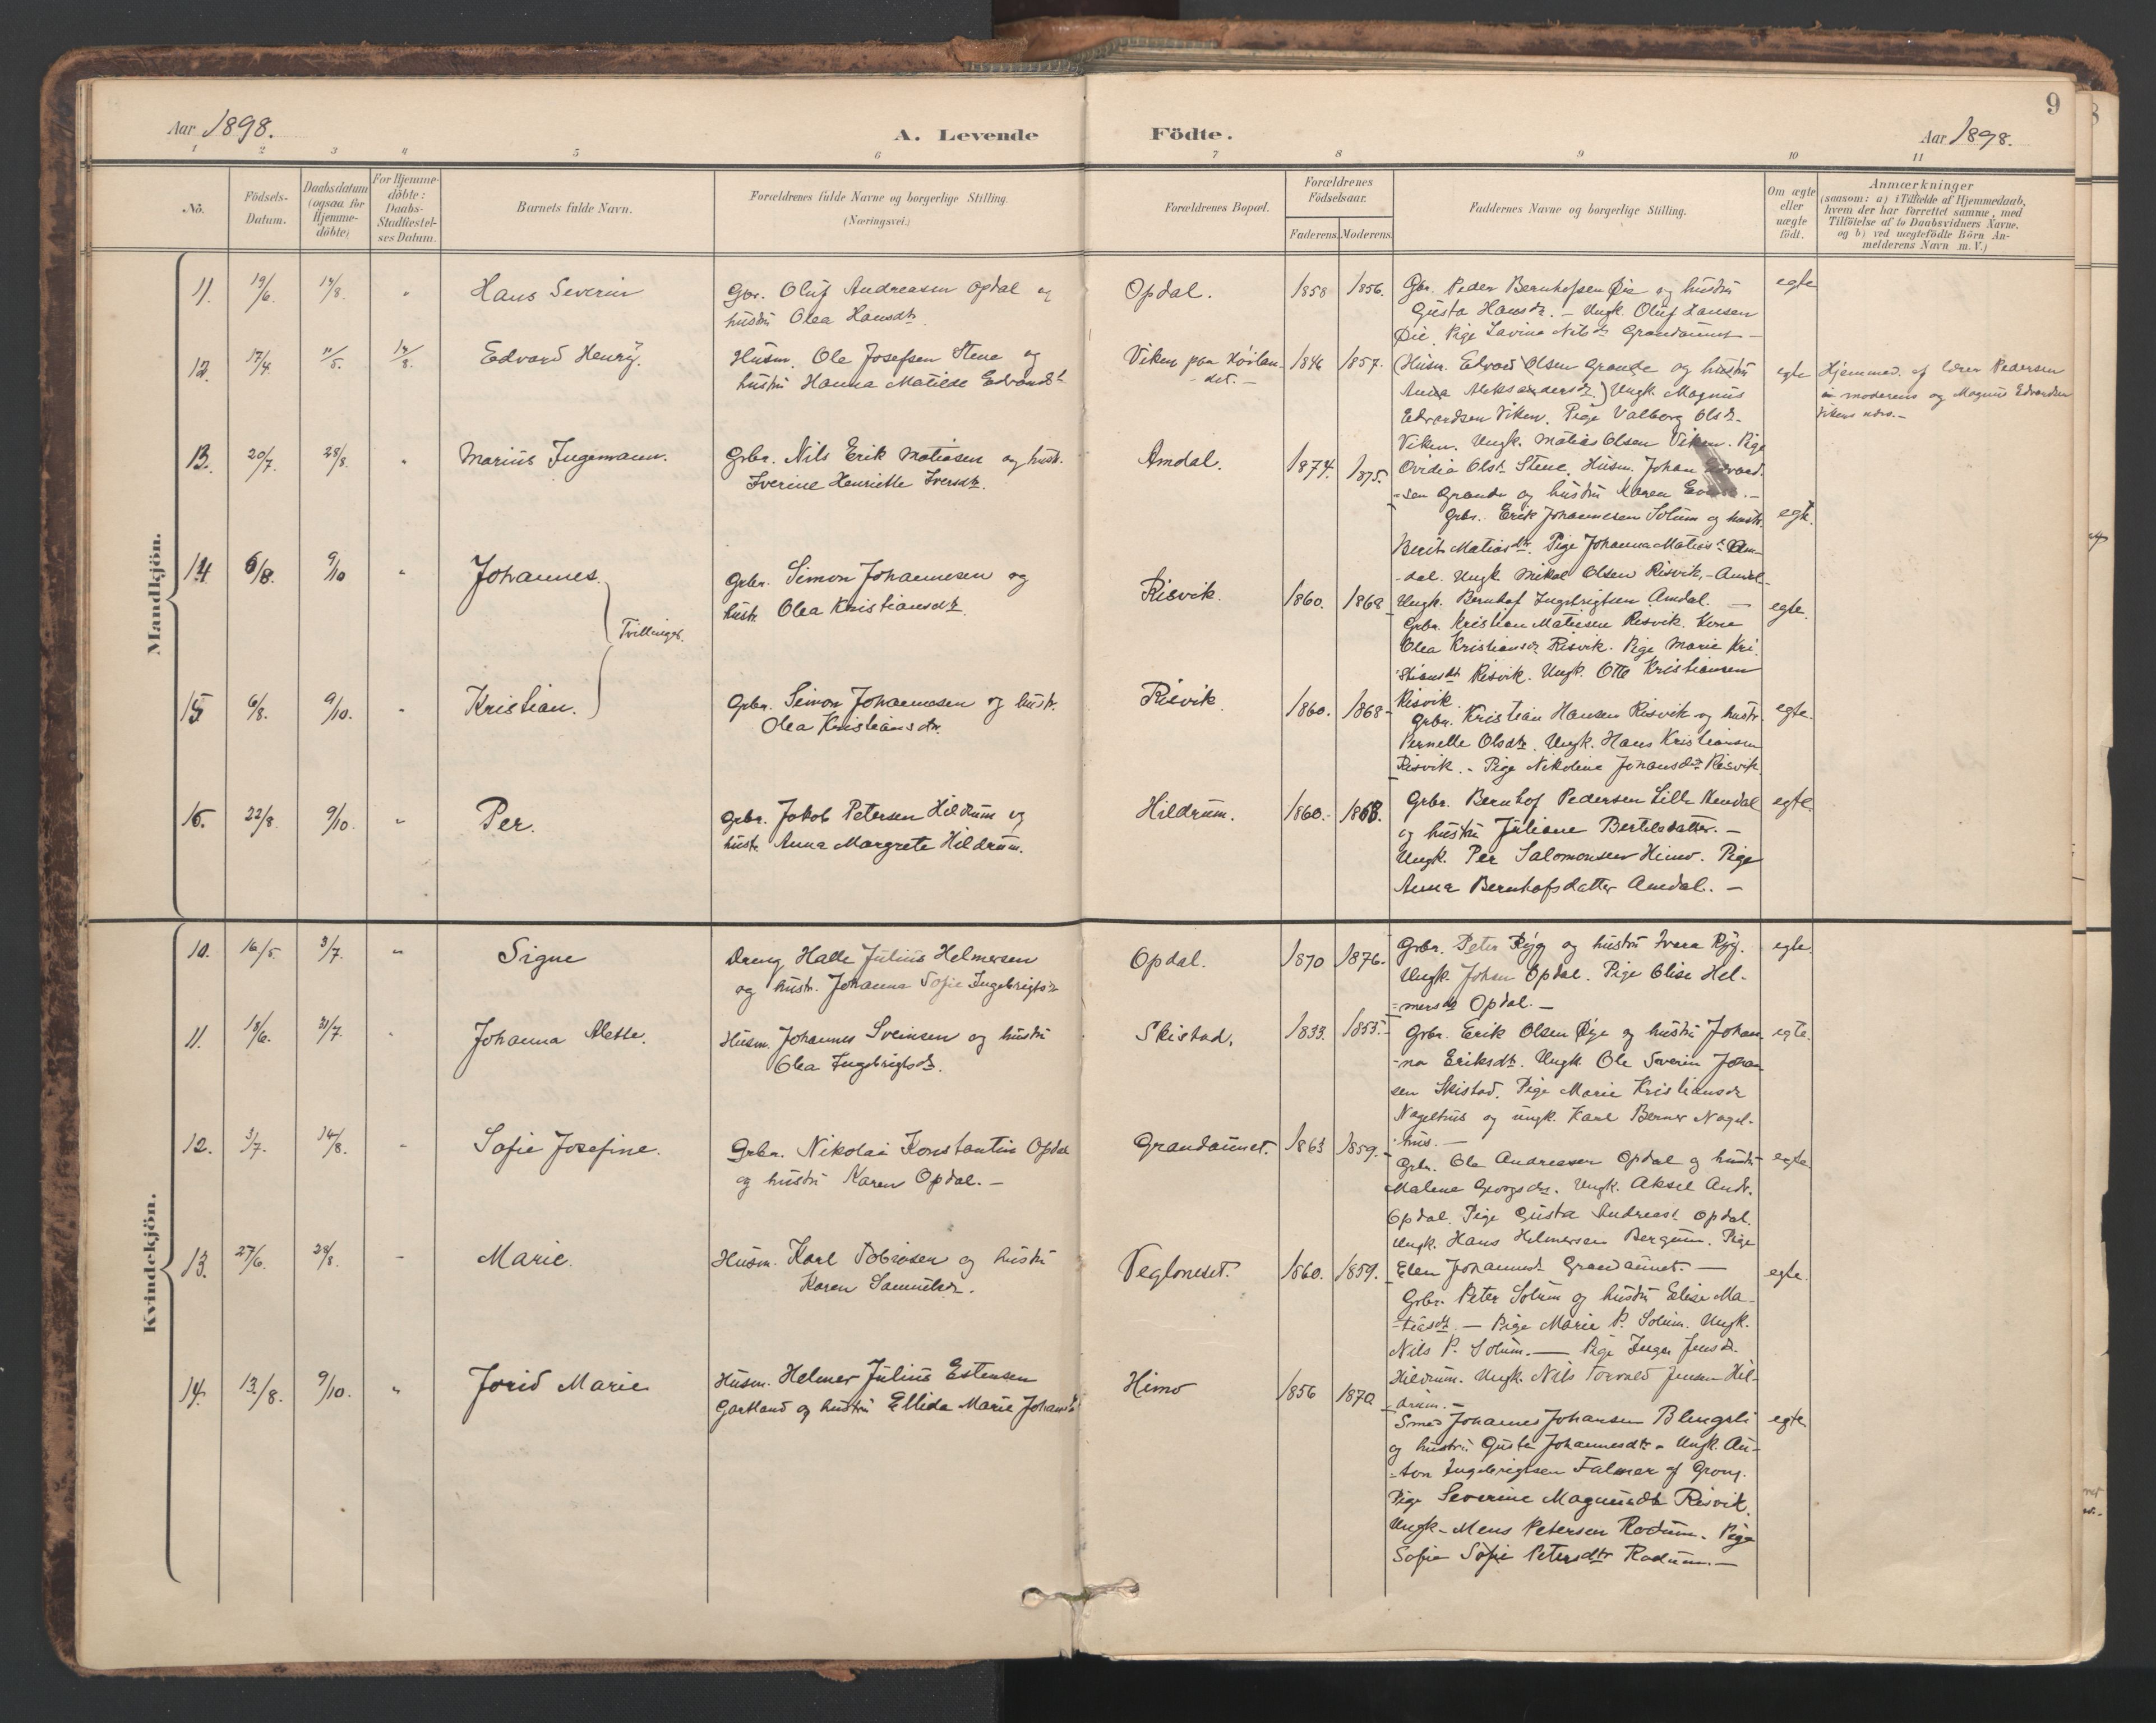 9
Aar 1898.
A. Levende Födte.
Aar 1898.
1 2 3 4 5 6 7 8 9 10 11
No.
Födsels-Datum.
Daabsdatum (ogsaa for Hjemme-döbte)
For Hjemme-döbte: Daabs-Stadfæstel-ses Datum.
Barnets fulde Navn.
Forældrenes fulde Navne og borgerlige Stilling. (Næringsvei.)
Forældrenes Bopæl.
Forældrenes Födselsaar.
Faderens. Moderens.
Faddernes Navne og borgerlige Stilling.
Om ægte eller uægte födt.
Anmærkninger
(saasom: a) i Tilfælde af Hjemmedaab,
hvem der har forrettet samme, med
Tilföielse af to Daabsvidners Navne.
og b) ved uægtefödte Börn An-
melderens Navn m. V.)
Mandkjön.
11. 19/6. 14/8. " Hans Severin
Gbr. Oluf Andreasen Opdal og
hustru Olea Hansdtr.
Opdal. 1858 1856.
Gbr. Peder Bernhofsen Øie og hustru
Gusta Hansdr. – Ungk. Oluf Hansen
Øie. Pige Lavina Nilsdr Grandaunet –
egte
12. 17/4. 11/5. 14/8. Edvard Henry.
Husm. Ole Josefsen Stene og
hustru Hanna Matilde Edvardsdt.
Viken paa Høilan-
det. –
1846 1857.
(Husm. Edvard Olsen Grande og hustru
Anna Aleksandersdr.) Ungk. Magnus
Edvardsen Viken. Pige Valborg Olsdr.
Viken. Ungk. Matias Olsen Viken. Pige
Ovidia Olsdr Stene. Husm. Johan Edvard-
sen Grande og hustru Karen
egte
Hjemmed. af lærer Pedersen
moderens og Magnus Edvardsen
Vikens
13. 20/7. 28/8. " Marius Ingemann.
Grbr. Nils Erik Matiasen og hustr.
Iverine Henriette Iversdtr.
Amdal. 1874. 1875.
Grbr. Erik Johannesen Solum og hustr.
Berit Matiasdtr. Pige Johanna Matiasdr Am-
-dal. Ungk. Mikal Olsen Risvik, – Amdal
Ungk. Bernhof Ingebrigtsen Amdal. –
egte.
14. 6/8. 9/10 " Johannes.
Grbr. Simon Johannesen og
hustr. Olea Kristiansdtr.
Risvik. 1860. 1868
Grbr. Kristian Matisen Risvik. Kone
Olea Kristiansdr Risvik. Pige Marie Kri-
stiansdt Risvik. Ungk. Otto Kristiansen
Risvik.
egte.
Tvillinger.
15 6/8. 9/10. " Kristian.
Grbr. Simon Johannesen og hustr.
Olea Kristiansdtr.
Risvik 1860. 1868
Grbr. Kristian Hansen Risvik og hustr.
Pernelle Olsdtr. Ungk. Hans Kristiansen
Risvik. – Pige Nikoline Johansdtr Risvik.
egte.
16. 22/8 9/10. " Per.
Grbr. Jakob Petersen Hildrum og
hustr. Anna Margrete Hildrum.
Hildrum. 1860. 1868.
Grbr. Bernhof Pedersen Lille Amdal
og hustru Juliane Bertelsdatter. –
Ungk. Per Salomonsen Himo. Pige
Anna Bernhofsdatter Amdal. –
egte.
Kvindekjön.
10. 16/5 3/7. " Signe
Dreng Halle Julius Helmersen
og hustr. Johanna Sofie Ingebrigtsdr
Opdal. 1870 1876.
Grbr. Peter Rygg og hustru Ivara Rygg.
Ungk. Johan Opdal. Pige Elise Hel-
mersdtr Opdal. –
egte.
11. 18/6. 31/7. " Johanna Alette.
Husm. Johannes Sveinsen og hustru
Olea Ingebrigtsdr.
Skistad. 1833. 1855.
Grbr. Erik Olsen Øye og hustru Johan-
-na Eriksdtr. Ungk. Ole Severin Johan-
sen Skistad. Pige Marie Kristiansdr
Nagelhus og ungk. Karl Berner Nagel-
hus. –
egte.
12. 3/7. 14/8. " Sofie Josefine.
Grbr. Nikolai Konstantin Opdal
og hustru Karen Opdal. –
Grandaunet. 1863 1859.
Grbr. Ole Andreasen Opdal og hustru
Malene Georgsdr. Ungk. Aksel Andr.
Opdal. Pige Gusta Andreasdt. Opdal.
Ungk. Hans Helmersen Bergum. Pige
Elen Johannesdr Grandaunet. –
egte
13. 27/6. 28/8. " Marie.
Husm. Karl Tobiasen og hustru
Karen Samuelsdr.
Vegloneset. 1860. 1859.
Grbr. Peter Solum og hustru Elise Ma-
-tiasdtr. – Pige Marie P. Solum. Ungk.
Nils P. Solum. – Pige Inger Jensdr.
Hildrum. Ungk. Nils Torvald Jensen Hil-
drum. –
egte.
14. 13/8. 9/10. " Jorid Marie
Husm. Helmer Julius Estensen
Gartland og hustru Ellida Marie Johansdt
Himo 1856 1870
Smed Johannes Johansen Blengsli
og hustru Gusta Johannesdtr. Ungk. An-
-ton Ingebrigtsen Falmer af Grong.
Pige Severine Magnusdtr Risvik.
Ungk. Mens Petersen Rodum. Pige
Sofie Sofie Petersdtr Rodum. –
egte